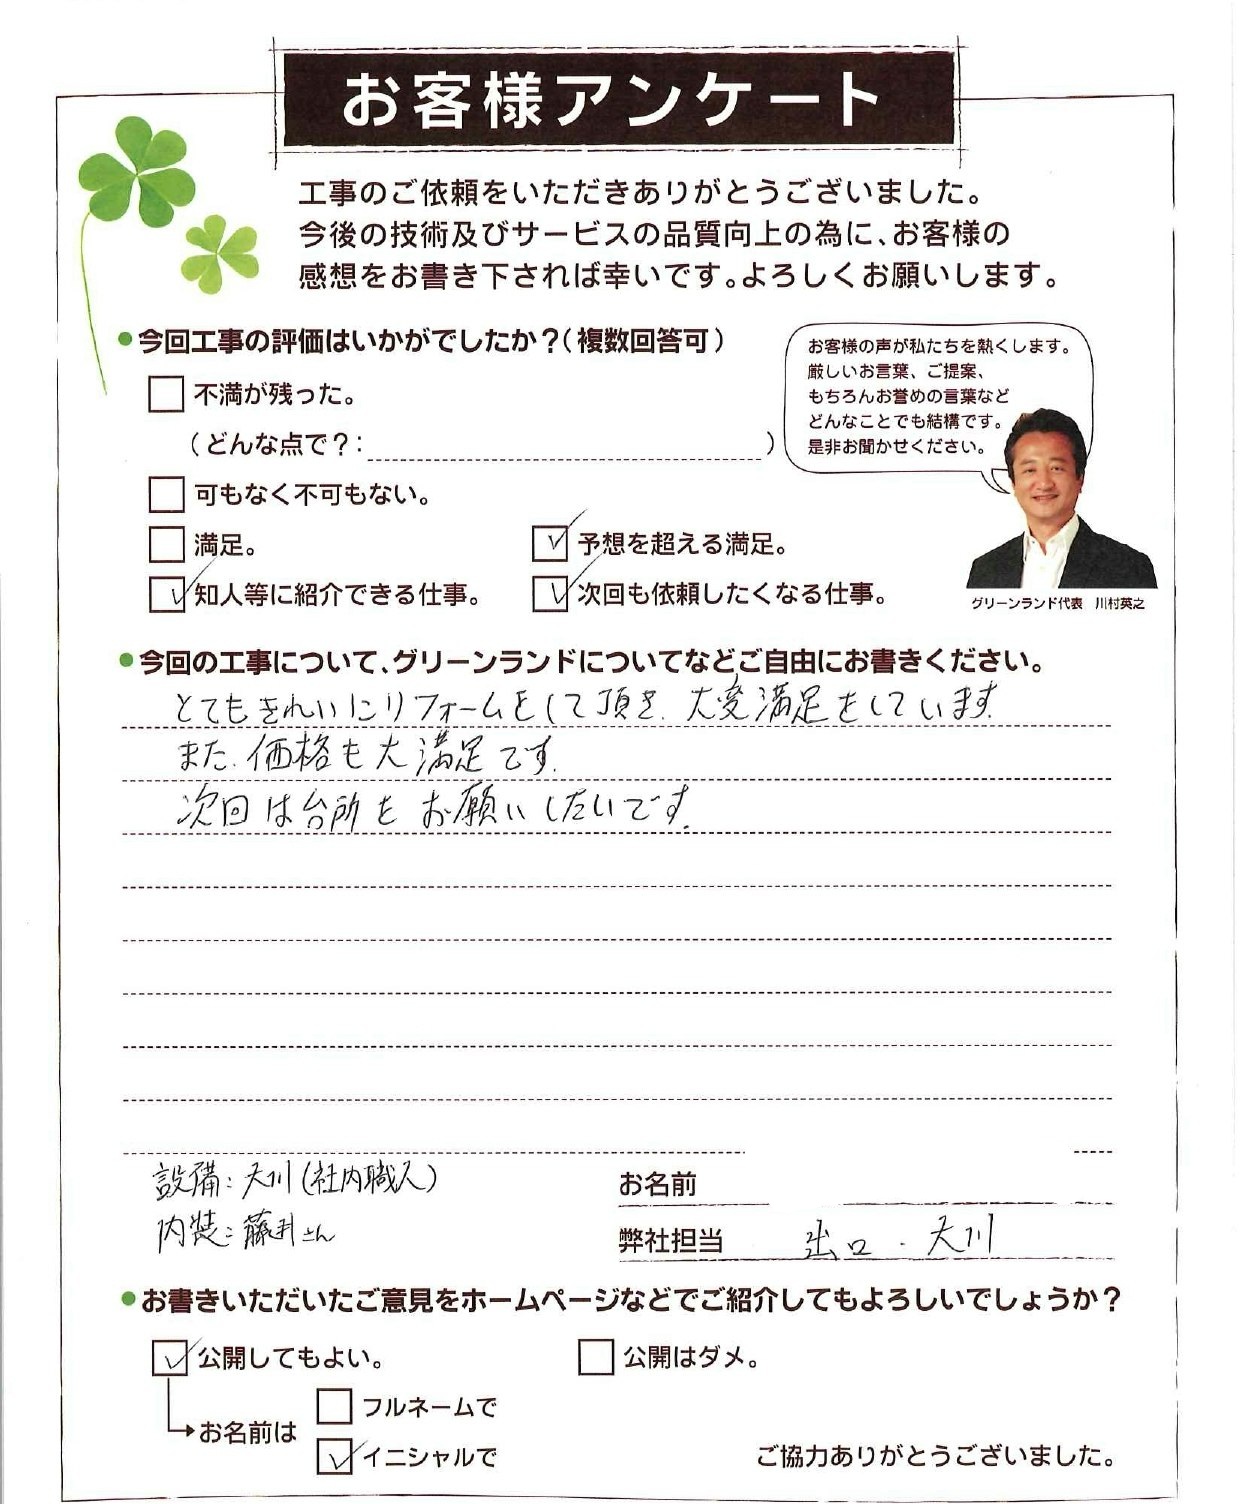 お客様アンケート
工事のご依頼をいただきありがとうございました。
今後の技術及びサービスの品質向上の為に、お客様の
感想をお書き下されば幸いです。よろしくお願いします。
●今回工事の評価はいかがでしたか？（複数回答可）
お客様の声が私たちを熱くします。
厳しいお言葉、ご提案、
もちろんお誉めの言葉など
どんなことでも結構です。
是非お聞かせください。
グリーンランド代表　川村英之
□ 不満が残った。
（どんな点で？：　）
□ 可もなく不可もない。
□ 満足。　☑ 予想を超える満足。
☑ 知人等に紹介できる仕事。　☑ 次回も依頼したくなる仕事。
●今回の工事について、グリーンランドについてなどご自由にお書きください。
とてもきれいにリフォームをして頂き、大変満足をしています。
また、価格も大満足です。
次回は台所をお願いしたいです。
設備：大川（社内職人）
内装：藤井さん
お名前
弊社担当　出口・大川
●お書きいただいたご意見をホームページなどでご紹介してもよろしいでしょうか？
☑ 公開してもよい。　□ 公開はダメ。
→お名前は
□ フルネームで
☑ イニシャルで
ご協力ありがとうございました。